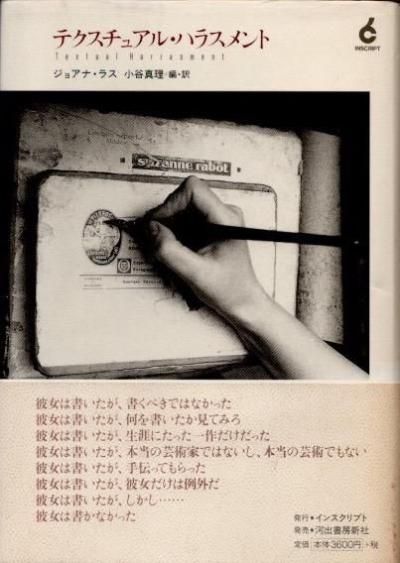 テクスチュアル・ハラスメント
Textual Harrassment
ジョアナ・ラス 小谷真理=編・訳
INSCRIPT
suzanne rabot
彼女は書いたが、書くべきではなかった
彼女は書いたが、何を書いたか見てみろ
彼女は書いたが、生涯にたった一作だけだった
彼女は書いたが、本当の芸術家ではないし、本当の芸術でもない
彼女は書いたが、手伝ってもらった
彼女は書いたが、彼女だけは例外だ
彼女は書いたが、しかし……
彼女は書かなかった
発行●インスクリプト
発売●河出書房新社
定価 本体3600円 +税